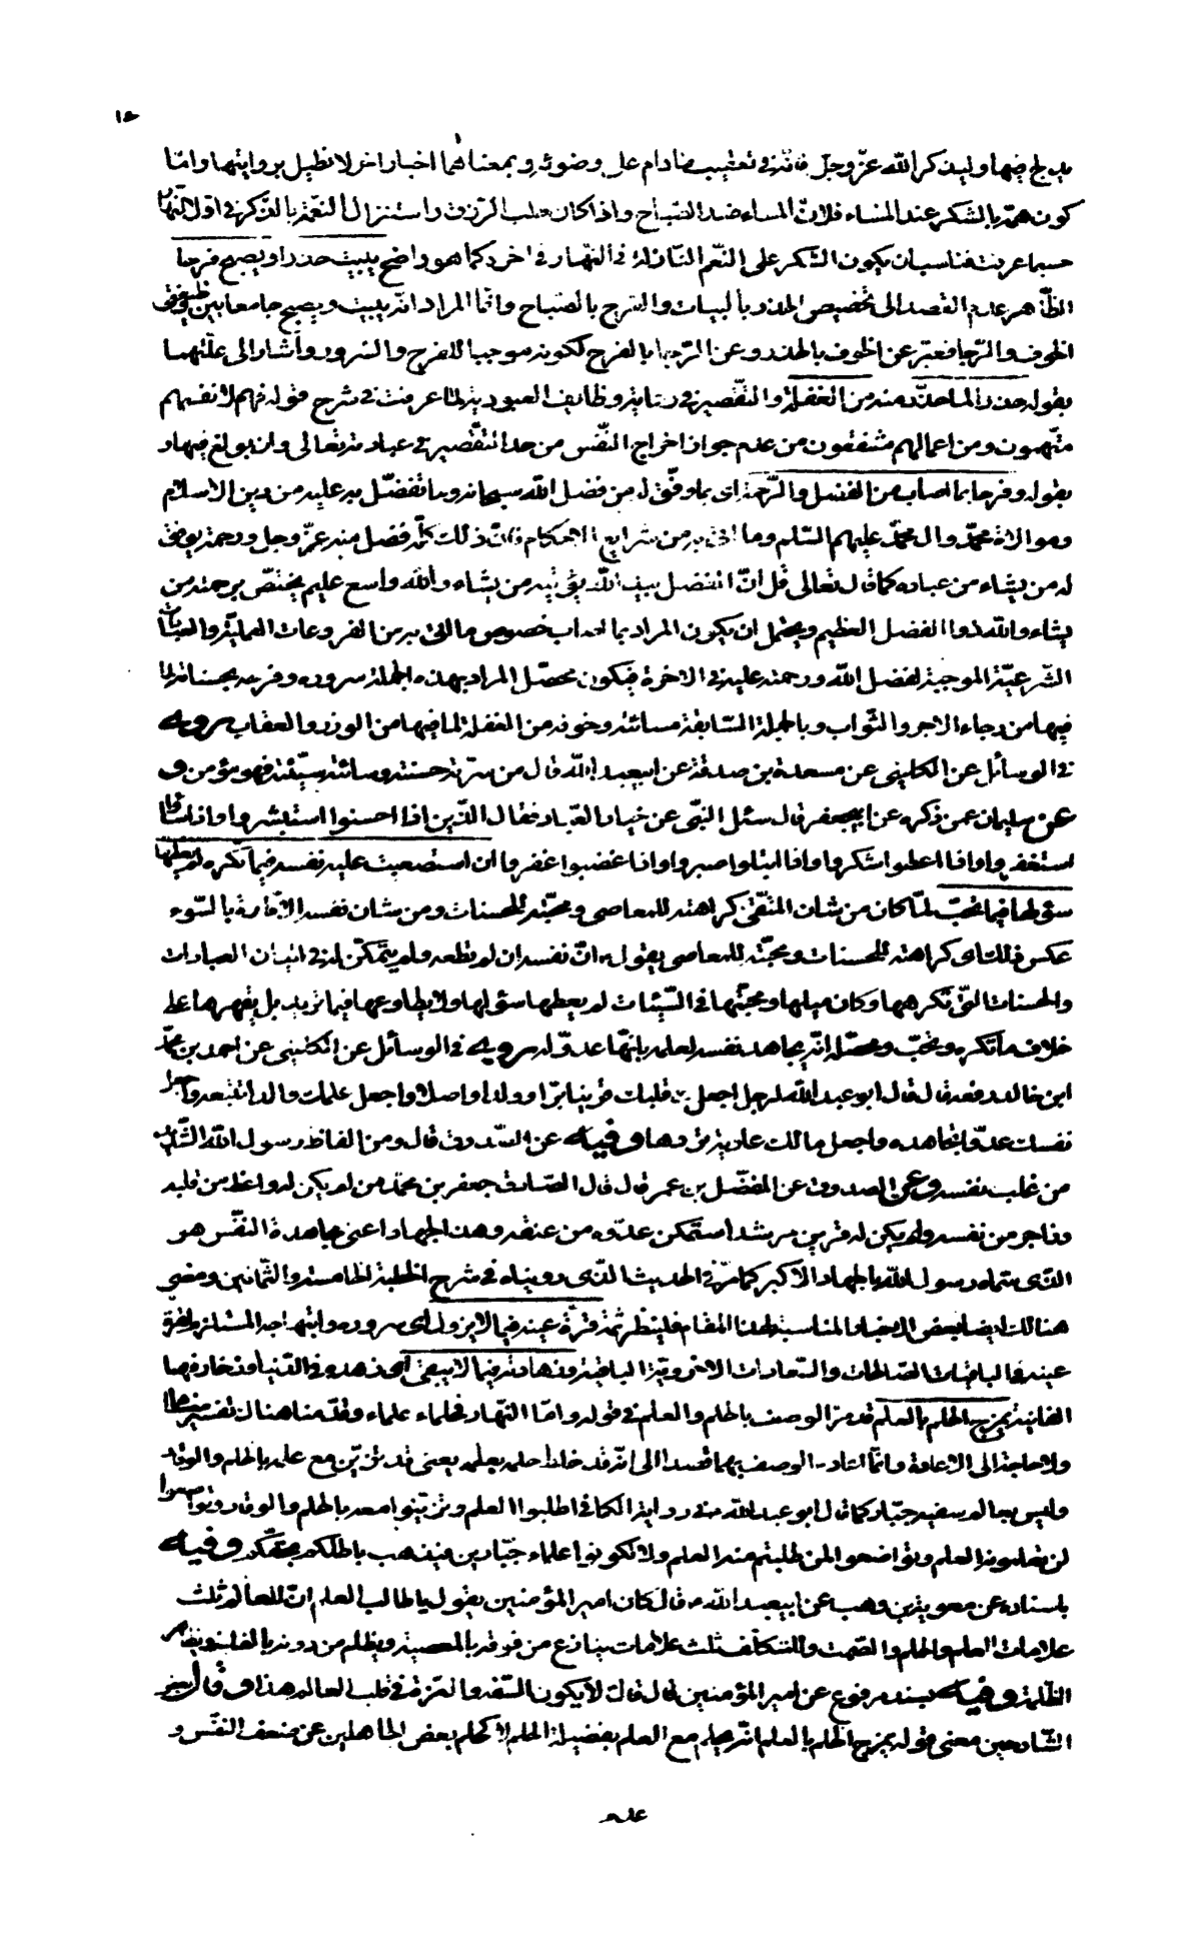 فيها وليذكر الله عزّ وجلّ فانّه في تعقيب مادام على وضوئه وبمعناهما اخبار اخر لا نطيل بروايتها وامّا
كون همّه بالشكر عند المساء فلانّ المساء ضد الصّباح واذا كان طلب الرّزق واستنزال النّعمة بالذّكر في اوّل النّهار
حسبما عرفت فناسب ان يكون الشكر على النّعم النّازلة في النّهار في آخره كما هو واضح يبيت حذرا ويصبح فرحا
الظّاهر عدم القصد الى تخصيص الحذر بالبيات والفرح بالصّباح وانّما المراد انّه يبيت ويصبح جامعا بين وصفي
الخوف والرّجا فعبّر عن الخوف بالحذر وعن الرّجا بالفرح لكونه موجبا للفرح والسّرور وأشار الى علّتهما
بقوله حذرا لما حذّر منه من الغفلة والتّقصير في رعاية وظايف العبوديّة لما عرفت في شرح قوله فهم لانفسهم
متّهمون ومن اعمالهم مشفقون من عدم جواز اخراج النّفس من حدّ التّقصير في عبادته تعالى وان بولغ فيها و
بقوله وفرحا بما اصاب من الفضل والرّحمة اى بما وفّق له من فضل الله سبحانه وما تفضّل به عليه من دين الاسلام
وموالاة محمّد وال محمّد عليهم السّلم وما اتى به من شرايع الاحكام فانّ ذلك كلّه فضل منه عزّ وجلّ ورحمة يوفق
له من يشاء من عباده كما قال تعالى قل انّ الفضل بيد الله يؤتيه من يشاء والله واسع عليم يختصّ برحمته من
يشاء والله ذو الفضل العظيم ويحتمل ان يكون المراد بما اصاب خصوص ما اتى به من الفروعات العمليّة والعبادات
الشّرعيّة الموجبة لفضل الله ورحمته عليه في الاخرة فيكون محصّل المراد بهذه الجملة سروره وفرحه بحسناته لما
فيها من رجاء الاجر والثّواب وبالجملة السّابقة مسائته وخوفه من الغفلة لما فيها من الوزر والعقاب روى
في الوسائل عن الكلينى عن مسعدة بن صدقة عن ابيعبد الله قال من سرّته حسنته وسائته سيّئته فهو مؤمن و
عن سليمان عمن ذكره عن ابيجعفر قال سئل النبّى عن خيار العباد فقال الّذين اذا احسنوا استبشروا واذا اساؤا
استغفروا واذا اعطوا شكروا واذا ابتلوا صبروا واذا غضبوا غفروا ان استصعبت عليه نفسه فيما تكره لم يعطها
سؤلها فيما تحبّ لمّا كان من شان المتّقى كراهته للمعاصى ومحبّته للحسنات ومن شان نفسه الامّارة بالسّوء
عكس ذلك اى كراهته للحسنات ومحبّته للمعاصى يقول انّ نفسه ان لم تطعه ولم يتمكّن له في اتيان العبادات
والحسنات الّتى تكرهها وكان ميلها ومحبّتها في السّيّئات لم يعطها سؤلها ولا يطاوعها فيما تريد بل يقهرها على
خلاف ما تكره وتحبّ ومحصّله انّه يجاهد نفسه لعلمه بانّها عدوّ له روى في الوسائل عن الكلينى عن احمد بن محمّد
ابن خالد رفعه قال قال ابو عبد الله لرجل اجعل قلبك قرينا برّا وولدا واصلا واجعل علمك والدا تتبعه واجعل
نفسك عدوّا تجاهده واجعل مالك عارية تردها وفيه عن الصّدوق قال ومن الفاظ رسول الله الشّديد
من غلب نفسه وعن الصدوق عن المفضّل بن عمر قال قال الصّادق جعفر بن محمّد من لم يكن له واعظ من قلبه
وزاجر من نفسه ولم يكن له قرين مرشد استمكن عدّوه من عنقه وهذا الجهاد اعنى مجاهدة النفّس هو
الّذى سمّاه رسول الله بالجهاد الاكبر كما مرّ في الحديث الّذى رويناه في شرح الخطبة الخامسة والثّمانين ومضى
هنالك ايضا بعض الاخبار المناسبة لهذا المقام فلينظر ثمة قرّة عينه فيما لا يزول اى سروره وابتهاجه المستلزم لقرّة
عينه في الباقيات الصّالحات والسّعادات الاخرويّة الباقية وزهادته فيما لا يبقى اى زهده في الدّنيا وزخارفها
الفانية يمزج الحلم بالعلم قد مرّ الوصف بالحلم والعلم في قوله وامّا النّهار فحلماء علماء وقدّمنا هنالك تفسيرهما
ولا حاجة الى الاعادة وانّما اعاد الوصف بهما قصدا الى انّه قد خلط حلمه بعلمه يعنى قد تزيّن مع علمه بالحلم والوقار
وليس بعالم سفيه جبّار كما قال ابو عبد الله في رواية الكافى اطلبوا العلم وتزيّنوا معه بالحلم والوقار وتواضعوا
لمن تعلمونه العلم وتواضعوا لمن طلبتم منه العلم ولا تكونوا علماء جبّارين فيذهب باطلكم بحقّكم وفيه
باسناده عن معوية بن وهب عن ابيعبد الله قال كان امير المؤمنين يقول يا طالب العلم انّ للعالم ثلث
علامات العلم والحلم والصّمت وللمتكلّف ثلث علامات ينازع من فوقه بالمعصية ويظلم من دونه بالغلبة ويظاهر
الظّلمة وفيه بسند مرفوع عن امير المؤمنين قال قال لا يكون السّفه والغرّة في قلب العالم هذا وقال بعض
الشّارحين معنى قوله يمزج الحلم بالعلم انّه يحلم مع العلم بفضيلة الحلم لا كحلم بعض الجاهلين عن ضعف النفّس و